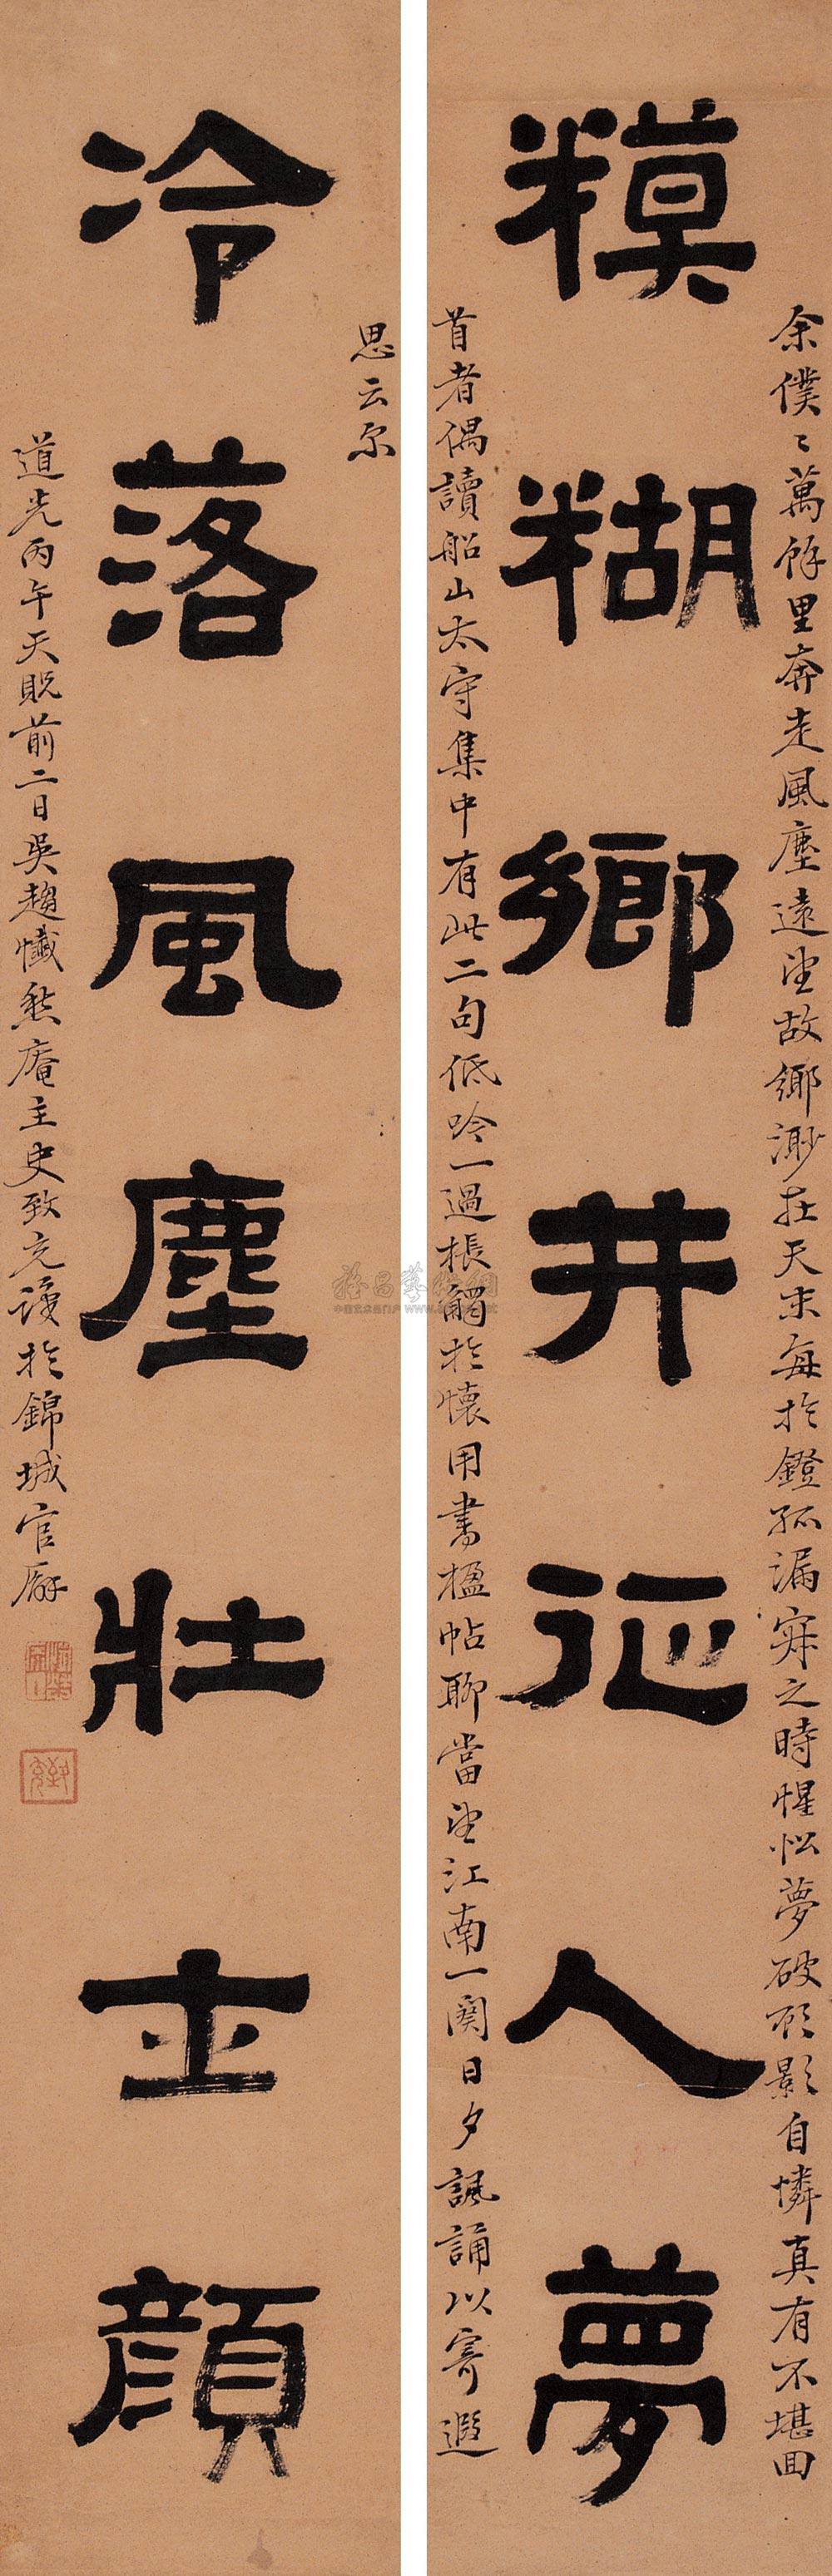 余僕〻萬餘里奔走風塵遠望故鄉渺在天末每於鐙孤漏寂之時惺忪夢破顧影自憐真有不堪回
糢糊鄉井征人夢
首者偶讀船山太守集中有此二句低吟一過棖觸於懷用書楹帖聊當望江南一闋日夕諷誦以寄遐
思云尔
冷落風塵壯士顏
道光丙午天貺前二日吳趨懺愁庵主史致充識於錦城官廨